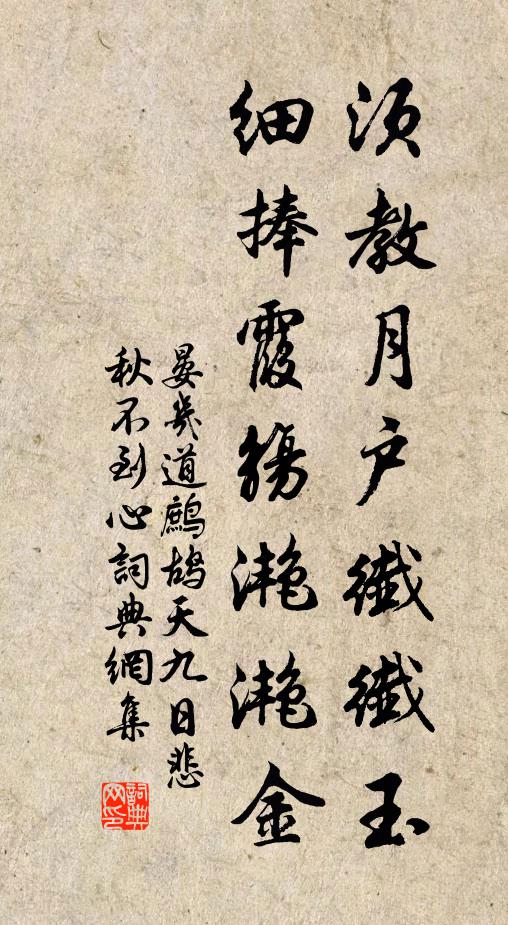 須教月户纖纖玉
細捧霞觴灧灧金
晏幾道鷓鴣天九日悲
秋不到心詞典網集
詞典
网印